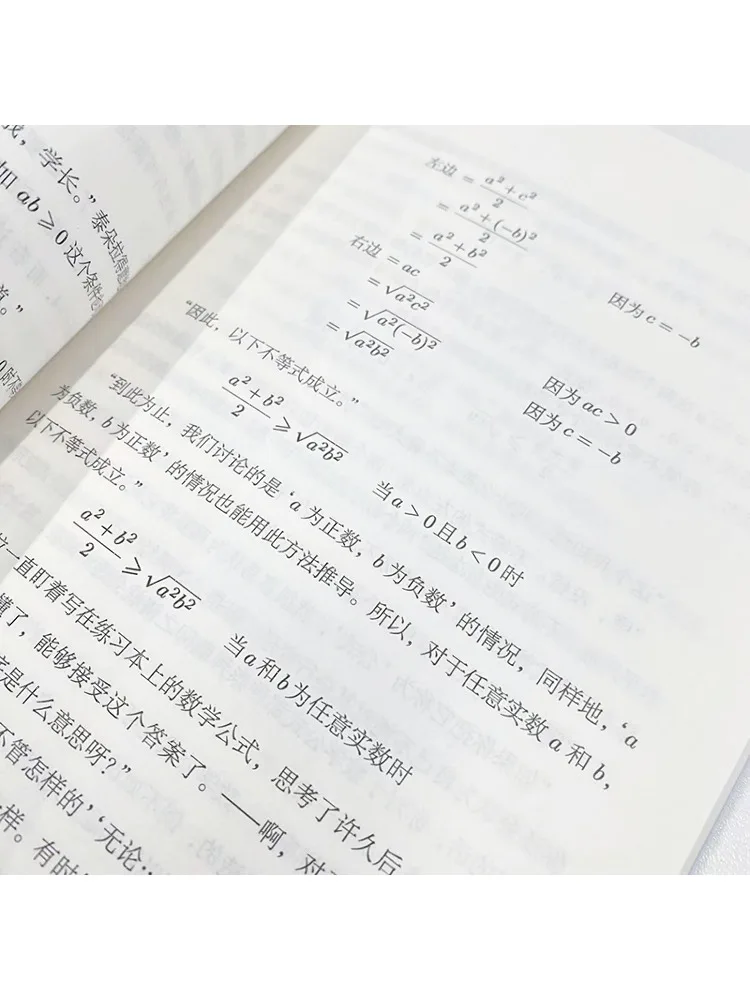 我，学长。”泰朵拉
加 ab ≥ 0 这个条件
道。”
左边 = \frac{a^2 + c^2}{2}
= \frac{a^2 + (-b)^2}{2} 因为 c = -b
= \frac{a^2 + b^2}{2}
右边 = ac
= \sqrt{a^2c^2} 因为 ac > 0
= \sqrt{a^2(-b)^2} 因为 c = -b
= \sqrt{a^2b^2}
“因此，以下不等式成立。”
\frac{a^2 + b^2}{2} ≥ \sqrt{a^2b^2} 当 a > 0 且 b < 0 时
“到此为止，我们讨论的是‘a 为正数，b 为负数’的情况，同样地，‘a
为负数，b 为正数’的情况也能用此方法推导。所以，对于任意实数 a 和 b，
以下不等式成立。”
\frac{a^2 + b^2}{2} ≥ \sqrt{a^2b^2} 当 a 和 b 为任意实数时
一直盯着写在练习本上的数学公式，思考了许久后
懂了，能够接受这个答案了。——啊，对
是什么意思呀？”
不管怎样的，‘无论…
样。有时